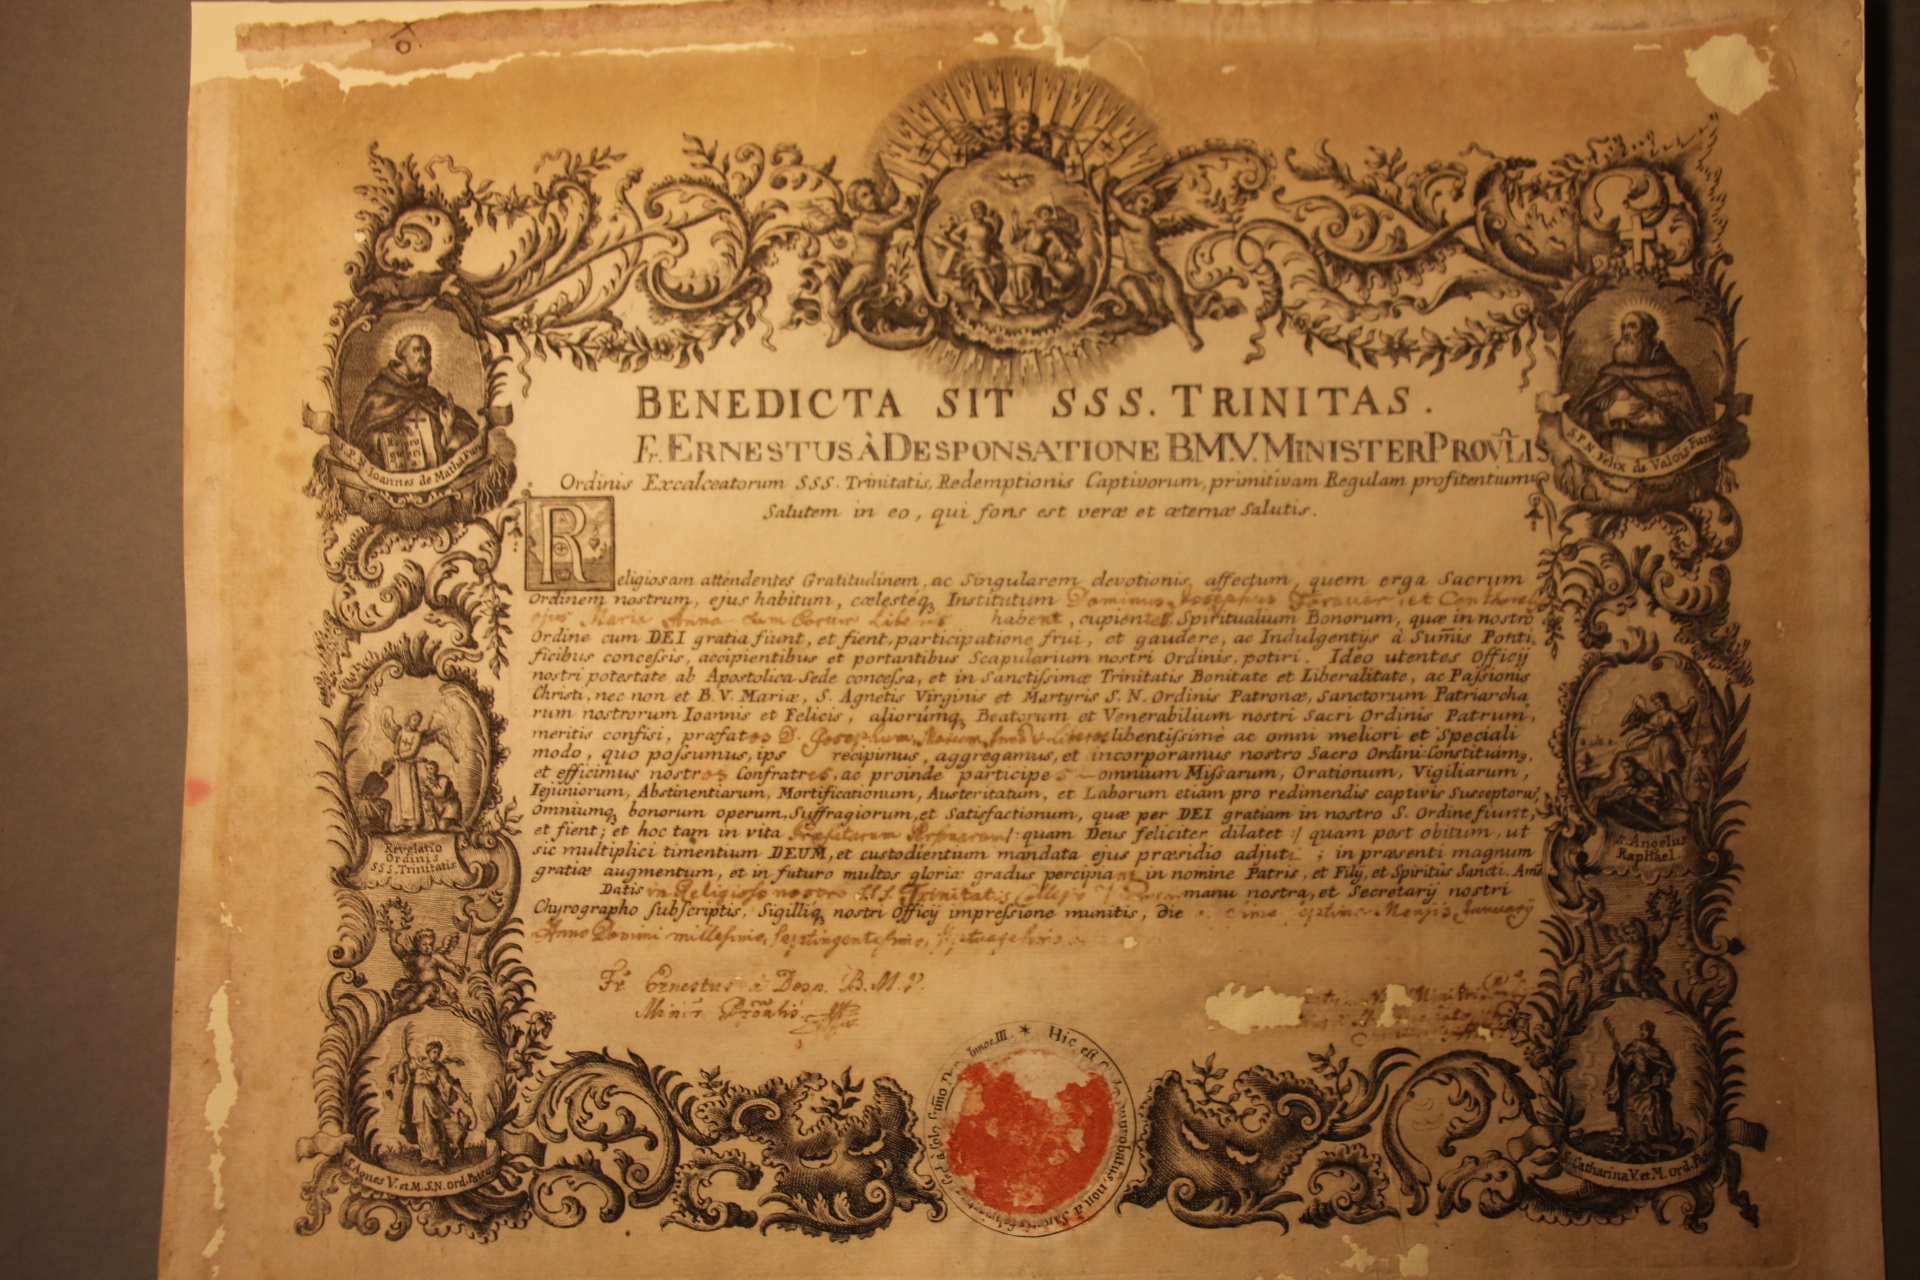 BENEDICTA SIT SSS. TRINITAS.
Fr. ERNESTUS À DESPONSATIONE B.M.V. MINISTER PROVLIS
Ordinis Excalceatorum SSS. Trinitatis, Redemptionis Captivorum, primitivam Regulam profitentium
Salutem in eo, qui fons est veræ et æternæ Salutis.
Religiosam attendentes Gratitudinem, ac Singularem devotionis affectum, quem erga Sacrum
Ordinem nostrum, ejus habitum, cælesteq, Institutum Dominus Josephus et
ejus Maria Anna cum Liberis habent, cupientes Spiritualium Bonorum, quæ in nostro
Ordine cum DEI gratia fiunt, et fient, participatione frui, et gaudere, ac Indulgentijs à Sum̃is Ponti
ficibus concessis, accipientibus et portantibus Scapularium nostri Ordinis, potiri. Ideo utentes Officij
nostri potestate ab Apostolica Sede concessa, et in Sanctissimæ Trinitatis Bonitate et Liberalitate, ac Passionis
Christi, nec non et B.V. Mariæ, S. Agnetis Virginis et Martyris S.N. Ordinis Patronæ, Sanctorum Patriarcha
rum nostrorum Ioannis et Felicis, aliorumq, Beatorum et Venerabilium nostri Sacri Ordinis Patrum,
meritis confisi, præfatos D. Josephum, Liberos libentissime ac omni meliori et Speciali
modo, quo possumus, ips recipimus, aggregamus, et incorporamus nostro Sacro Ordini: Constituimq,
et efficimus nostros Confratres, ac proinde participes omnium Missarum, Orationum, Vigiliarum,
Iejuniorum, Abstinentiarum, Mortificationum, Austeritatum, et Laborum etiam pro redimendis captivis Susceptoru,
Omniumq, bonorum operum, Suffragiorum, et Satisfactionum, quæ per DEI gratiam in nostro S. Ordine fiunt,
et fient; et hoc tam in vita /: quam Deus feliciter dilatet :/ quam post obitum, ut
sic multiplici timentium DEUM, et custodientium mandata ejus præsidio adjuti ; in præsenti magnum
gratiæ augmentum, et in futuro multos gloriæ gradus percipiant in nomine Patris, et Filij, et Spiritus Sancti. Amē
Datis in Religioso nostro SSS. Trinitatis Collegio manu nostra, et Secretarij nostri
Chyrographo subscriptis, Sigilliq, nostri Officij impressione munitis, die Mensis January
Anno Domini millesimo, Septingentesimo,
Fr. Ernestus à Desp. B.M.V.
Minr
S.P.N. Ioannes de Matha Fund.
S.P.N. Felix de Valois Fund.
Revelatio
Ordinis
SSS. Trinitatis
S. Angelus
Raphael
S. Agnes V. et M. S.N. Ord. Patro
S. Catharina V. et M. Ord. Patro
Innoc. III. * Hic est